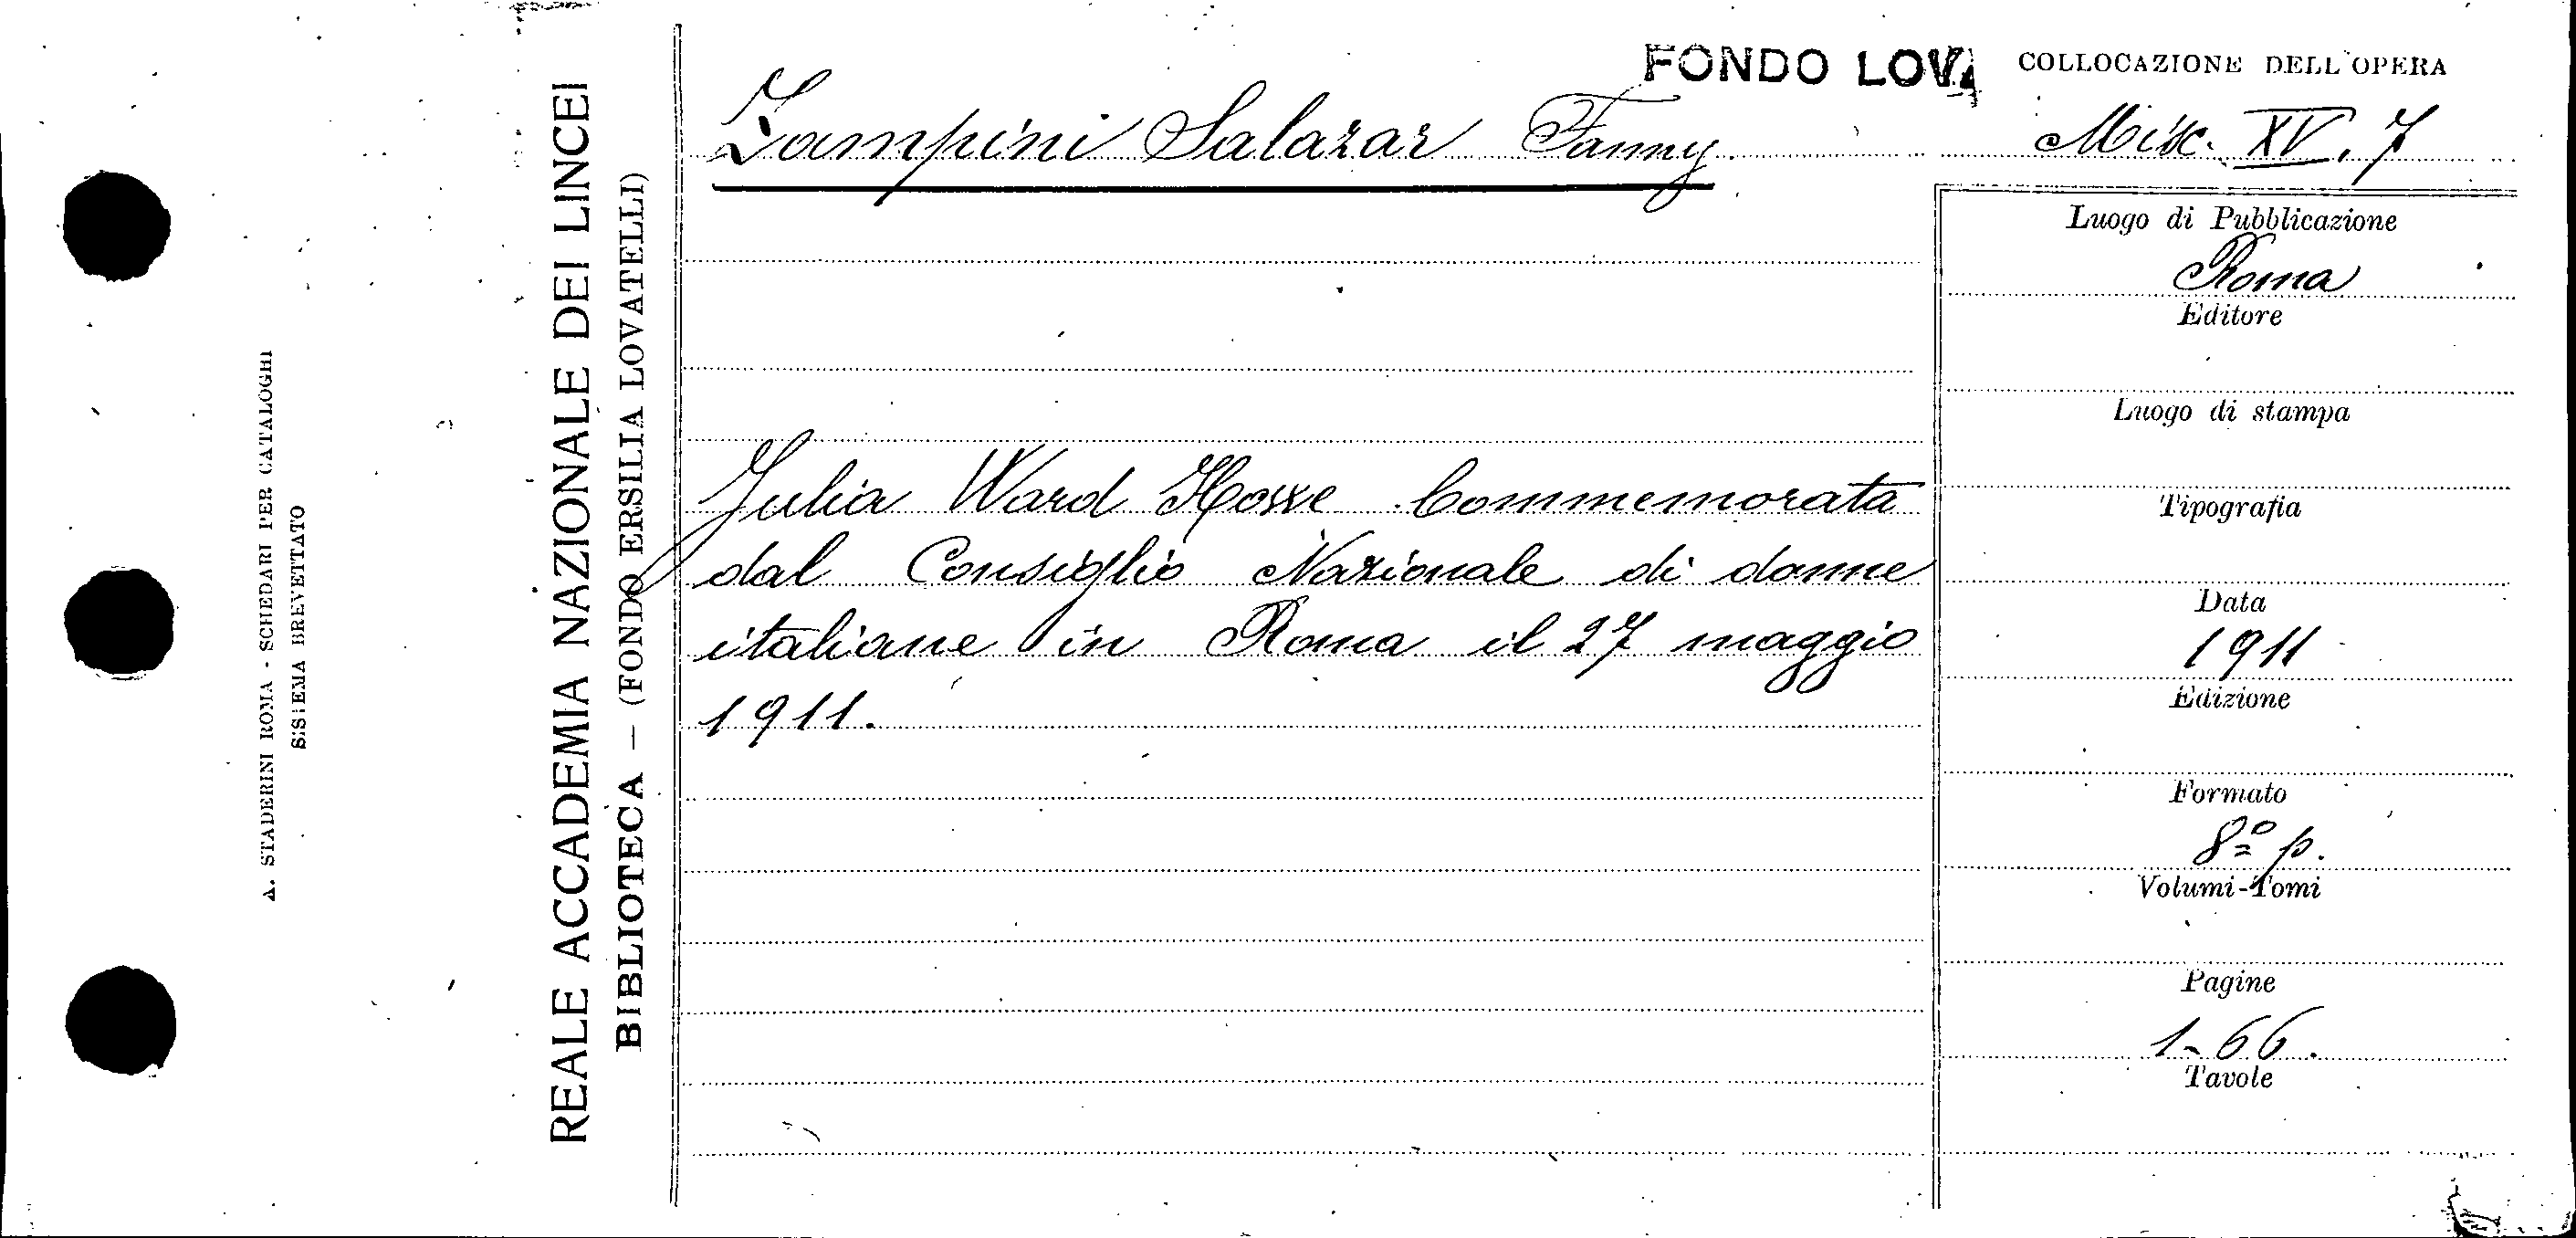 A. STADERINI ROMA - SCHEDARI PER CATALOGHI
SISTEMA BREVETTATO
REALE ACCADEMIA NAZIONALE DEI LINCEI
BIBLIOTECA — (FONDO ERSILIA LOVATELLI)
FONDO LOVA
COLLOCAZIONE DELL'OPERA
Zampini Salazar Fanny
Misc. XV. 7
Julia Ward Howe Commemorata
dal Consiglio Nazionale di donne
italiane in Roma il 27 maggio
1911.
Luogo di Pubblicazione
Roma
Editore
Luogo di stampa
Tipografia
Data
1911
Edizione
Formato
8º p.
Volumi-Tomi
Pagine
1-66.
Tavole